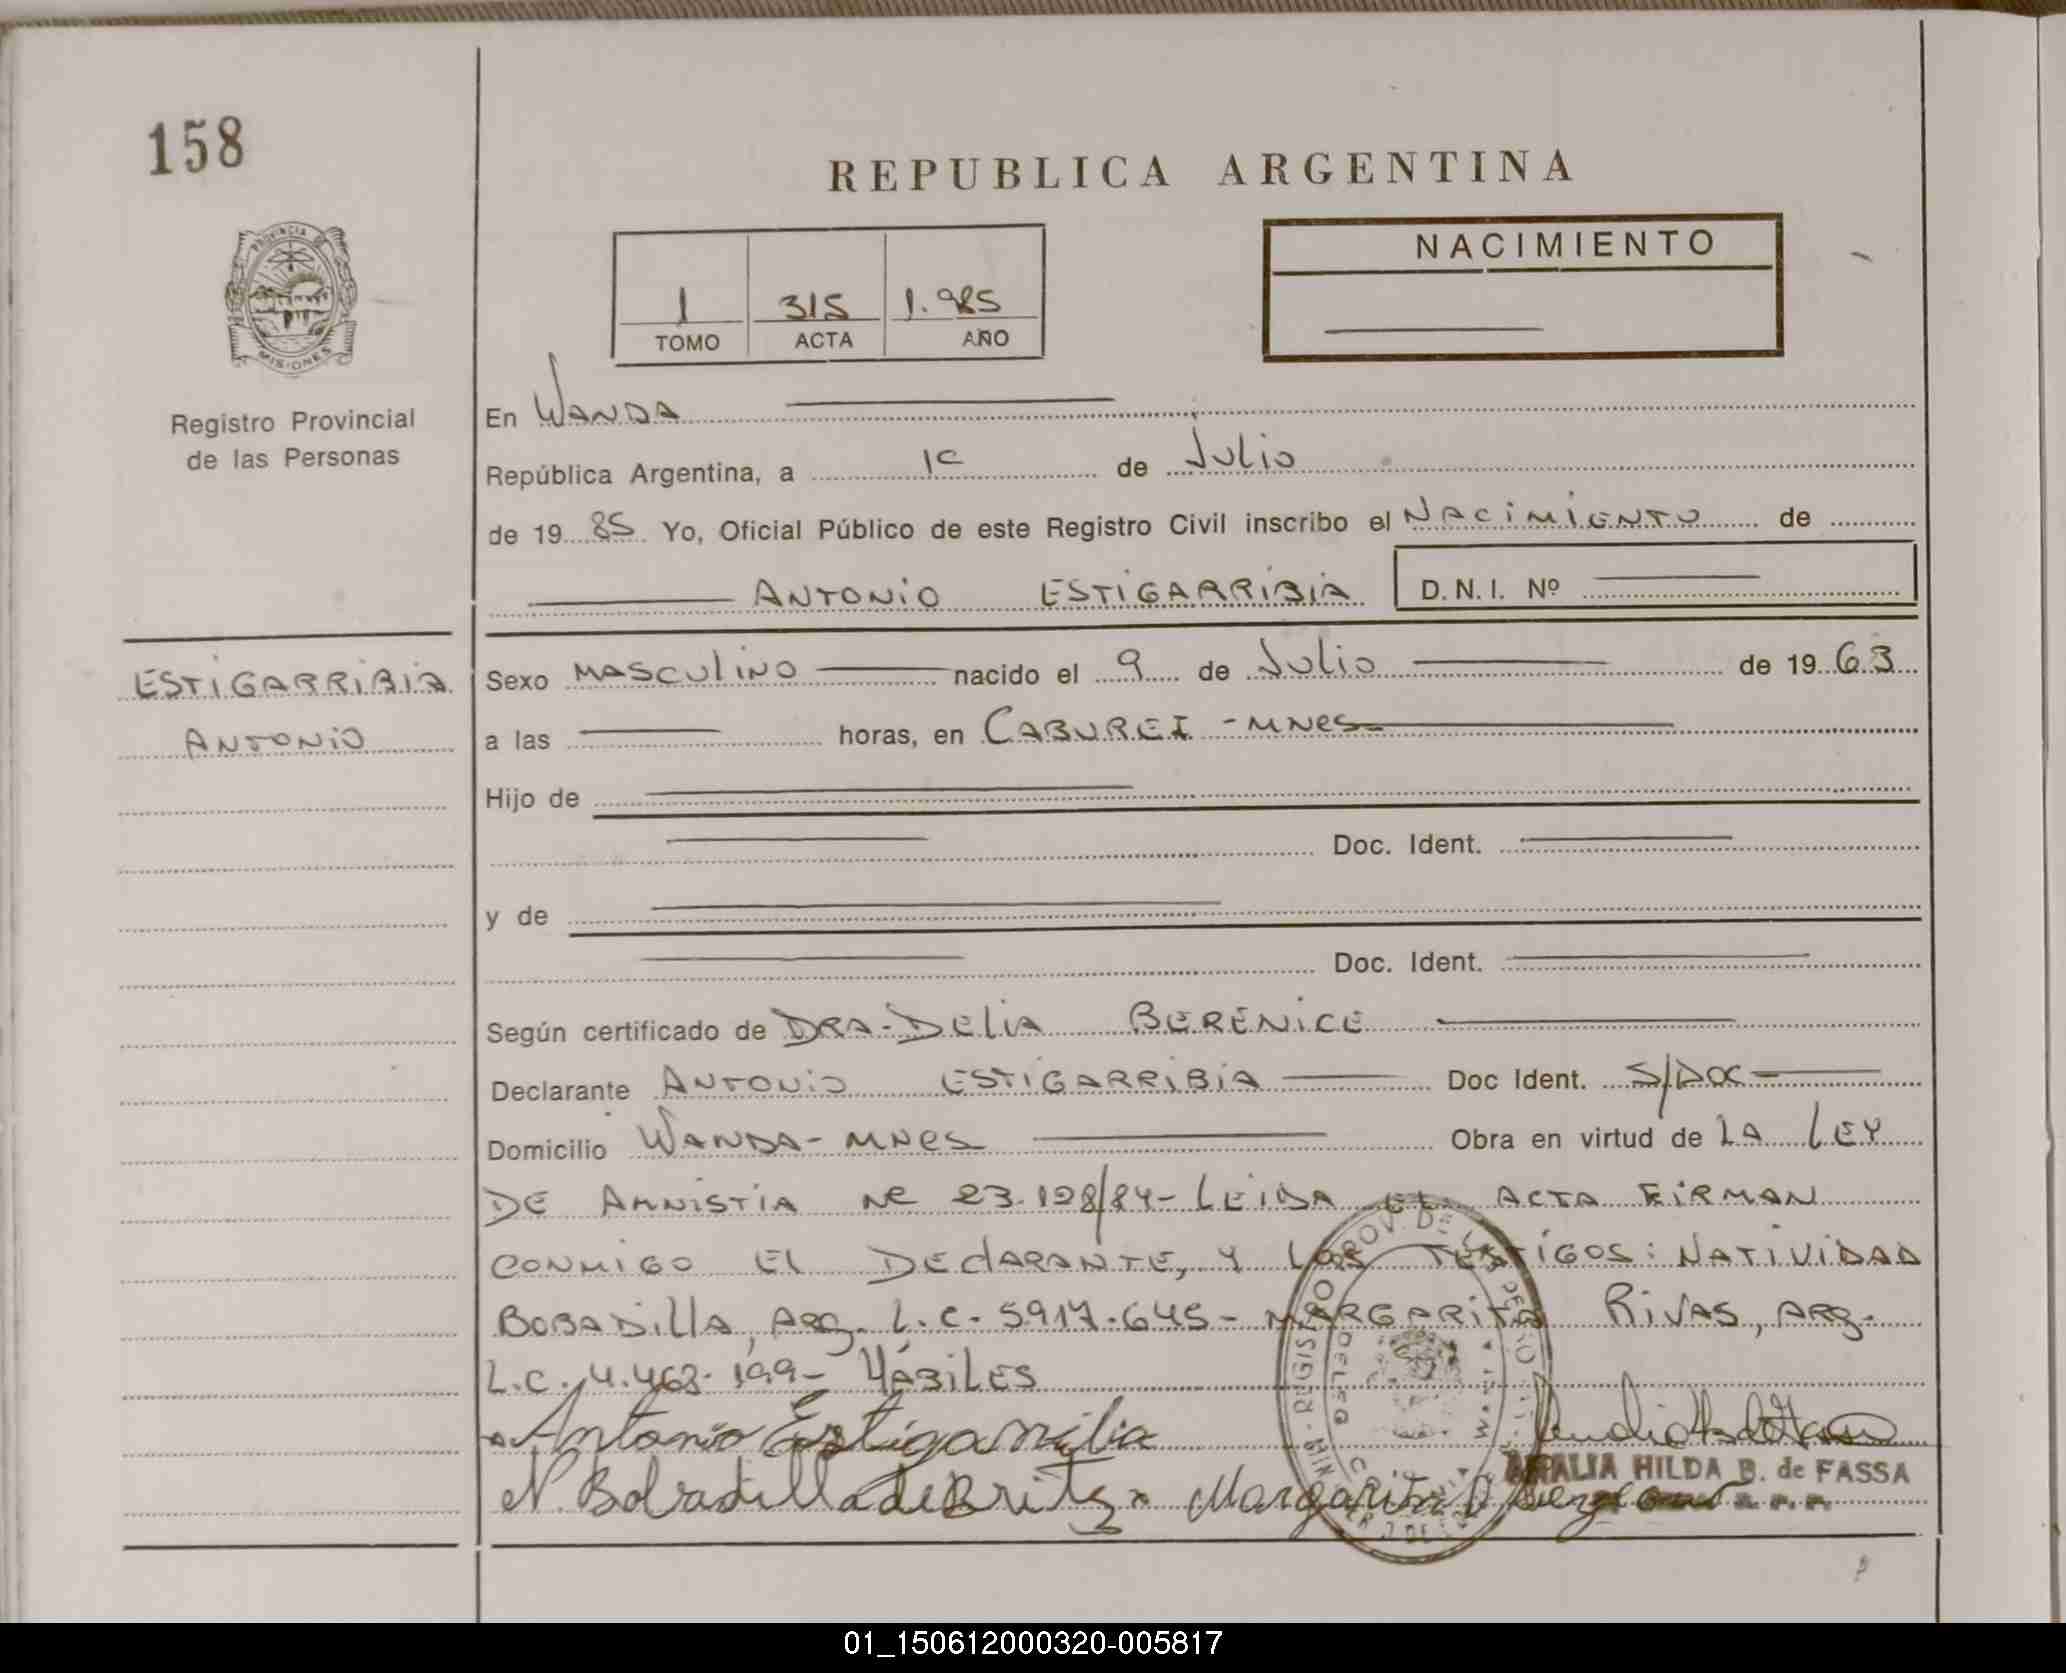 158
REPUBLICA ARGENTINA
NACIMIENTO
1 315 1.985
TOMO ACTA AÑO
PROVINCIA DE
MISIONES
Registro Provincial
de las Personas
En WANDA
República Argentina, a 1º de JULIO
de 19 85 Yo, Oficial Público de este Registro Civil inscribo el NACIMIENTO de
ANTONIO ESTIGARRIBIA D.N.I. Nº
ESTIGARRIBIA
ANTONIO
Sexo MASCULINO nacido el 9 de JULIO de 19 63
a las horas, en CABUREI - MNES
Hijo de
Doc. Ident.
y de
Doc. Ident.
Según certificado de DRA-DELIA BERENICE
Declarante ANTONIO ESTIGARRIBIA Doc Ident. S/DOC
Domicilio WANDA - MNES Obra en virtud de LA LEY
DE AMNISTIA Nº 23.128/84 - LEIDA EL ACTA FIRMAN
CONMIGO EL DECLARANTE, Y LOS TESTIGOS: NATIVIDAD
BOBADILLA, ARG. L.C. 5917.645 - MARGARITA RIVAS, ARG.
L.C. 4.463.199 - HÁBILES
Antonio Estigarribia
AMALIA HILDA B. de FASSA
N. Bobadilla de Britez Margarita
01_150612000320-005817